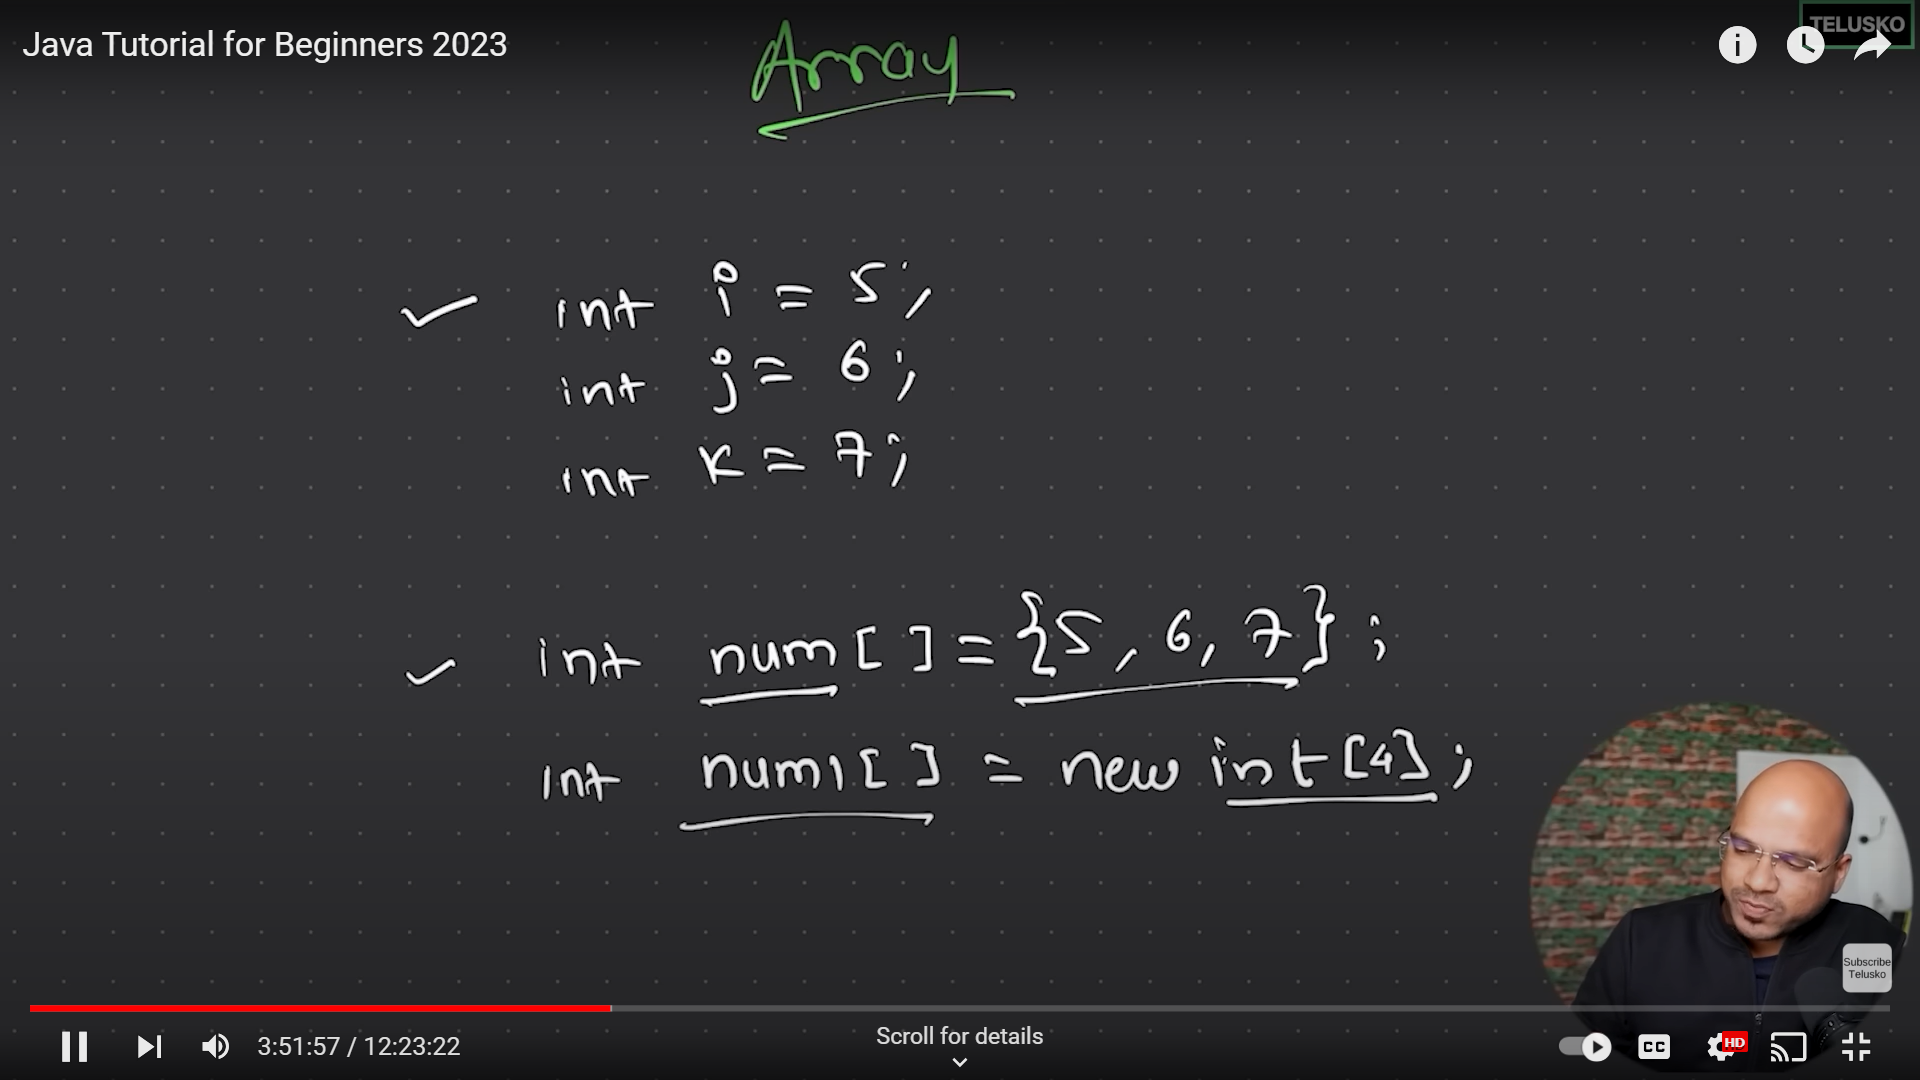 Java Tutorial for Beginners 2023
TELUSKO
Array
int i = 5;
int j = 6;
int k = 7;
int num[ ] = {5, 6, 7};
int num1[ ] = new int[4];
Subscribe
Telusko
3:51:57 / 12:23:22
Scroll for details
CC
HD